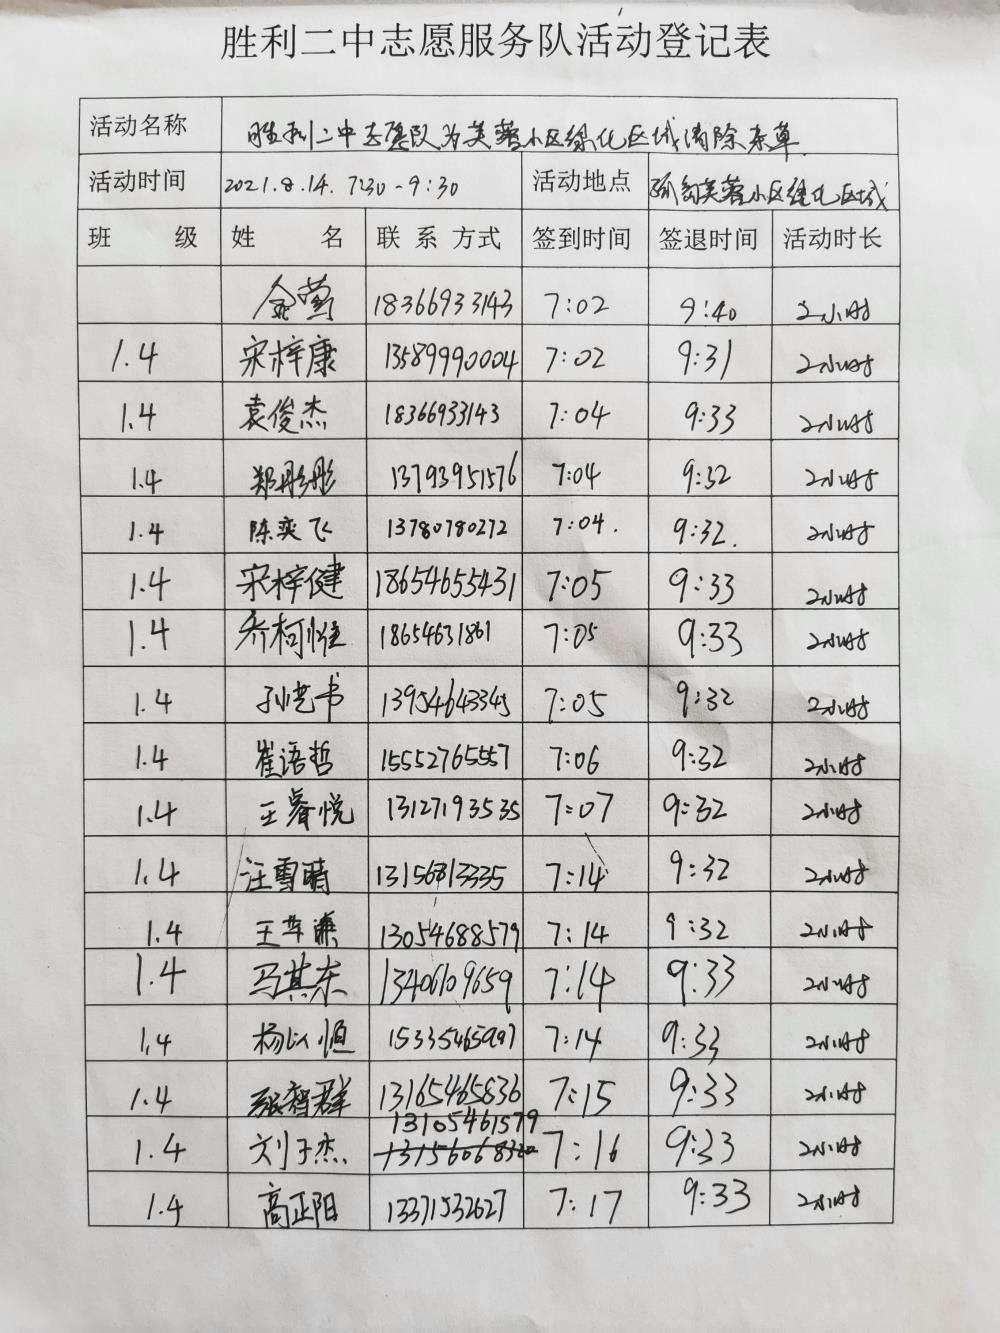 胜利二中志愿服务队活动登记表
活动名称 胜利二中志愿队为芙蓉小区绿化区域清除杂草.
活动时间 2021.8.14. 7:30-9:30 活动地点 芙蓉小区绿化区域
班 级 姓 名 联系方式 签到时间 签退时间 活动时长
金莺 18366933143 7:02 9:40 2小时
1.4 宋梓康 13589990004 7:02 9:31 2小时
1.4 袁俊杰 18366933143 7:04 9:33 2小时
1.4 郑彤彤 13793951576 7:04 9:32 2小时
1.4 陈奕飞 13780780272 7:04. 9:32. 2小时
1.4 宋梓健 18654655431 7:05 9:33 2小时
1.4 乔柯惟 18654631861 7:05 9:33 2小时
1.4 孙书 13954643345 7:05 9:32 2小时
1.4 崔语哲 15552765557 7:06 9:32 2小时
1.4 王睿悦 13127193535 7:07 9:32 2小时
1.4 汪雪晴 13156813335 7:14 9:32 2小时
1.4 王 13054688579 7:14 9:32 2小时
1.4 马其东 13406109659 7:14 9:33 2小时
1.4 杨以恒 15335465997 7:14 9:33 2小时
1.4 张智群 13165465836 7:15 9:33 2小时
13105461579
1.4 刘子杰 7:16 9:33 2小时
1.4 高正阳 13371532627 7:17 9:33 2小时